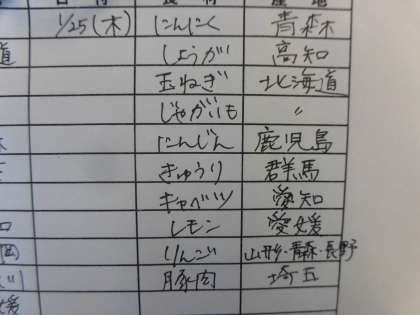 1/25(木) にんにく 青森
しょうが 高知
道 玉ねぎ 北海道
じゃがいも 〃
にんじん 鹿児島
きゅうり 群馬
キャベツ 愛知
レモン 愛媛
りんご 山形・青森・長野
豚肉 埼玉
媛